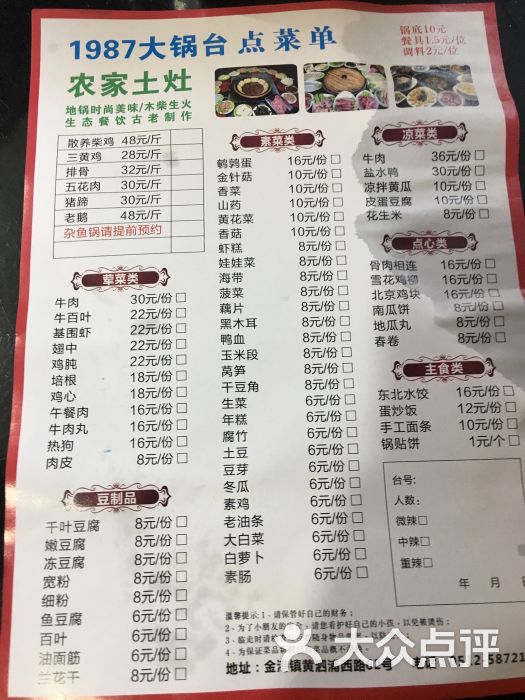 1987大锅台 点菜单
锅底10元
餐具1.5元/位
调料2元/位
农家土灶
地锅时尚美味/木柴生火
生态餐饮古老制作
散养柴鸡 48元/斤
三黄鸡 28元/斤
排骨 32元/斤
五花肉 30元/斤
猪蹄 30元/斤
老鹅 48元/斤
杂鱼锅请提前预约
荤菜类
牛肉 30元/份□
牛百叶 22元/份□
基围虾 22元/份□
翅中 22元/份□
鸡肫 22元/份□
培根 18元/份□
鸡心 18元/份□
午餐肉 16元/份□
牛肉丸 16元/份□
热狗 16元/份□
肉皮 8元/份□
豆制品
千叶豆腐 8元/份□
嫩豆腐 8元/份□
冻豆腐 8元/份□
宽粉 8元/份□
细粉 8元/份□
鱼豆腐 6元/份□
百叶 6元/份□
油面筋 6元/份□
兰花干 8元/份□
素菜类
鹌鹑蛋 16元/份□
金针菇 10元/份□
香菜 10元/份□
山药 10元/份□
黄花菜 10元/份□
香菇 10元/份□
虾糕 8元/份□
娃娃菜 8元/份□
海带 8元/份□
菠菜 8元/份□
藕片 8元/份□
黑木耳 8元/份□
鸭血 8元/份□
玉米段 8元/份□
莴笋 8元/份□
干豆角 8元/份□
生菜 6元/份□
年糕 6元/份□
腐竹 6元/份□
土豆 6元/份□
豆芽 6元/份□
冬瓜 6元/份□
素鸡 6元/份□
老油条 6元/份□
大白菜 6元/份□
白萝卜 6元/份□
素肠 6元/份□
凉菜类
牛肉 36元/份□
盐水鸭 30元/份□
凉拌黄瓜 10元/份□
皮蛋豆腐 10元/份□
花生米 8元/份□
点心类
骨肉相连 16元/份□
雪花鸡柳 16元/份□
北京鸡块 16元/份□
南瓜饼 8元/份□
地瓜丸 8元/份□
春卷 8元/份□
主食类
东北水饺 16元/份□
蛋炒饭 12元/份□
手工面条 10元/份□
锅贴饼 1元/个□
台号:
人数:
微辣□
中辣□
重辣□
年 月 日
温馨提示:1、请保管好自己的财务;
2、为了小朋友的安全,请您看护好自己的小孩,以免被烫伤;
3、临走时请 随身物品
4、为保证菜品 菜品概不
地址:金港镇黄泗浦西路 号
大众点评